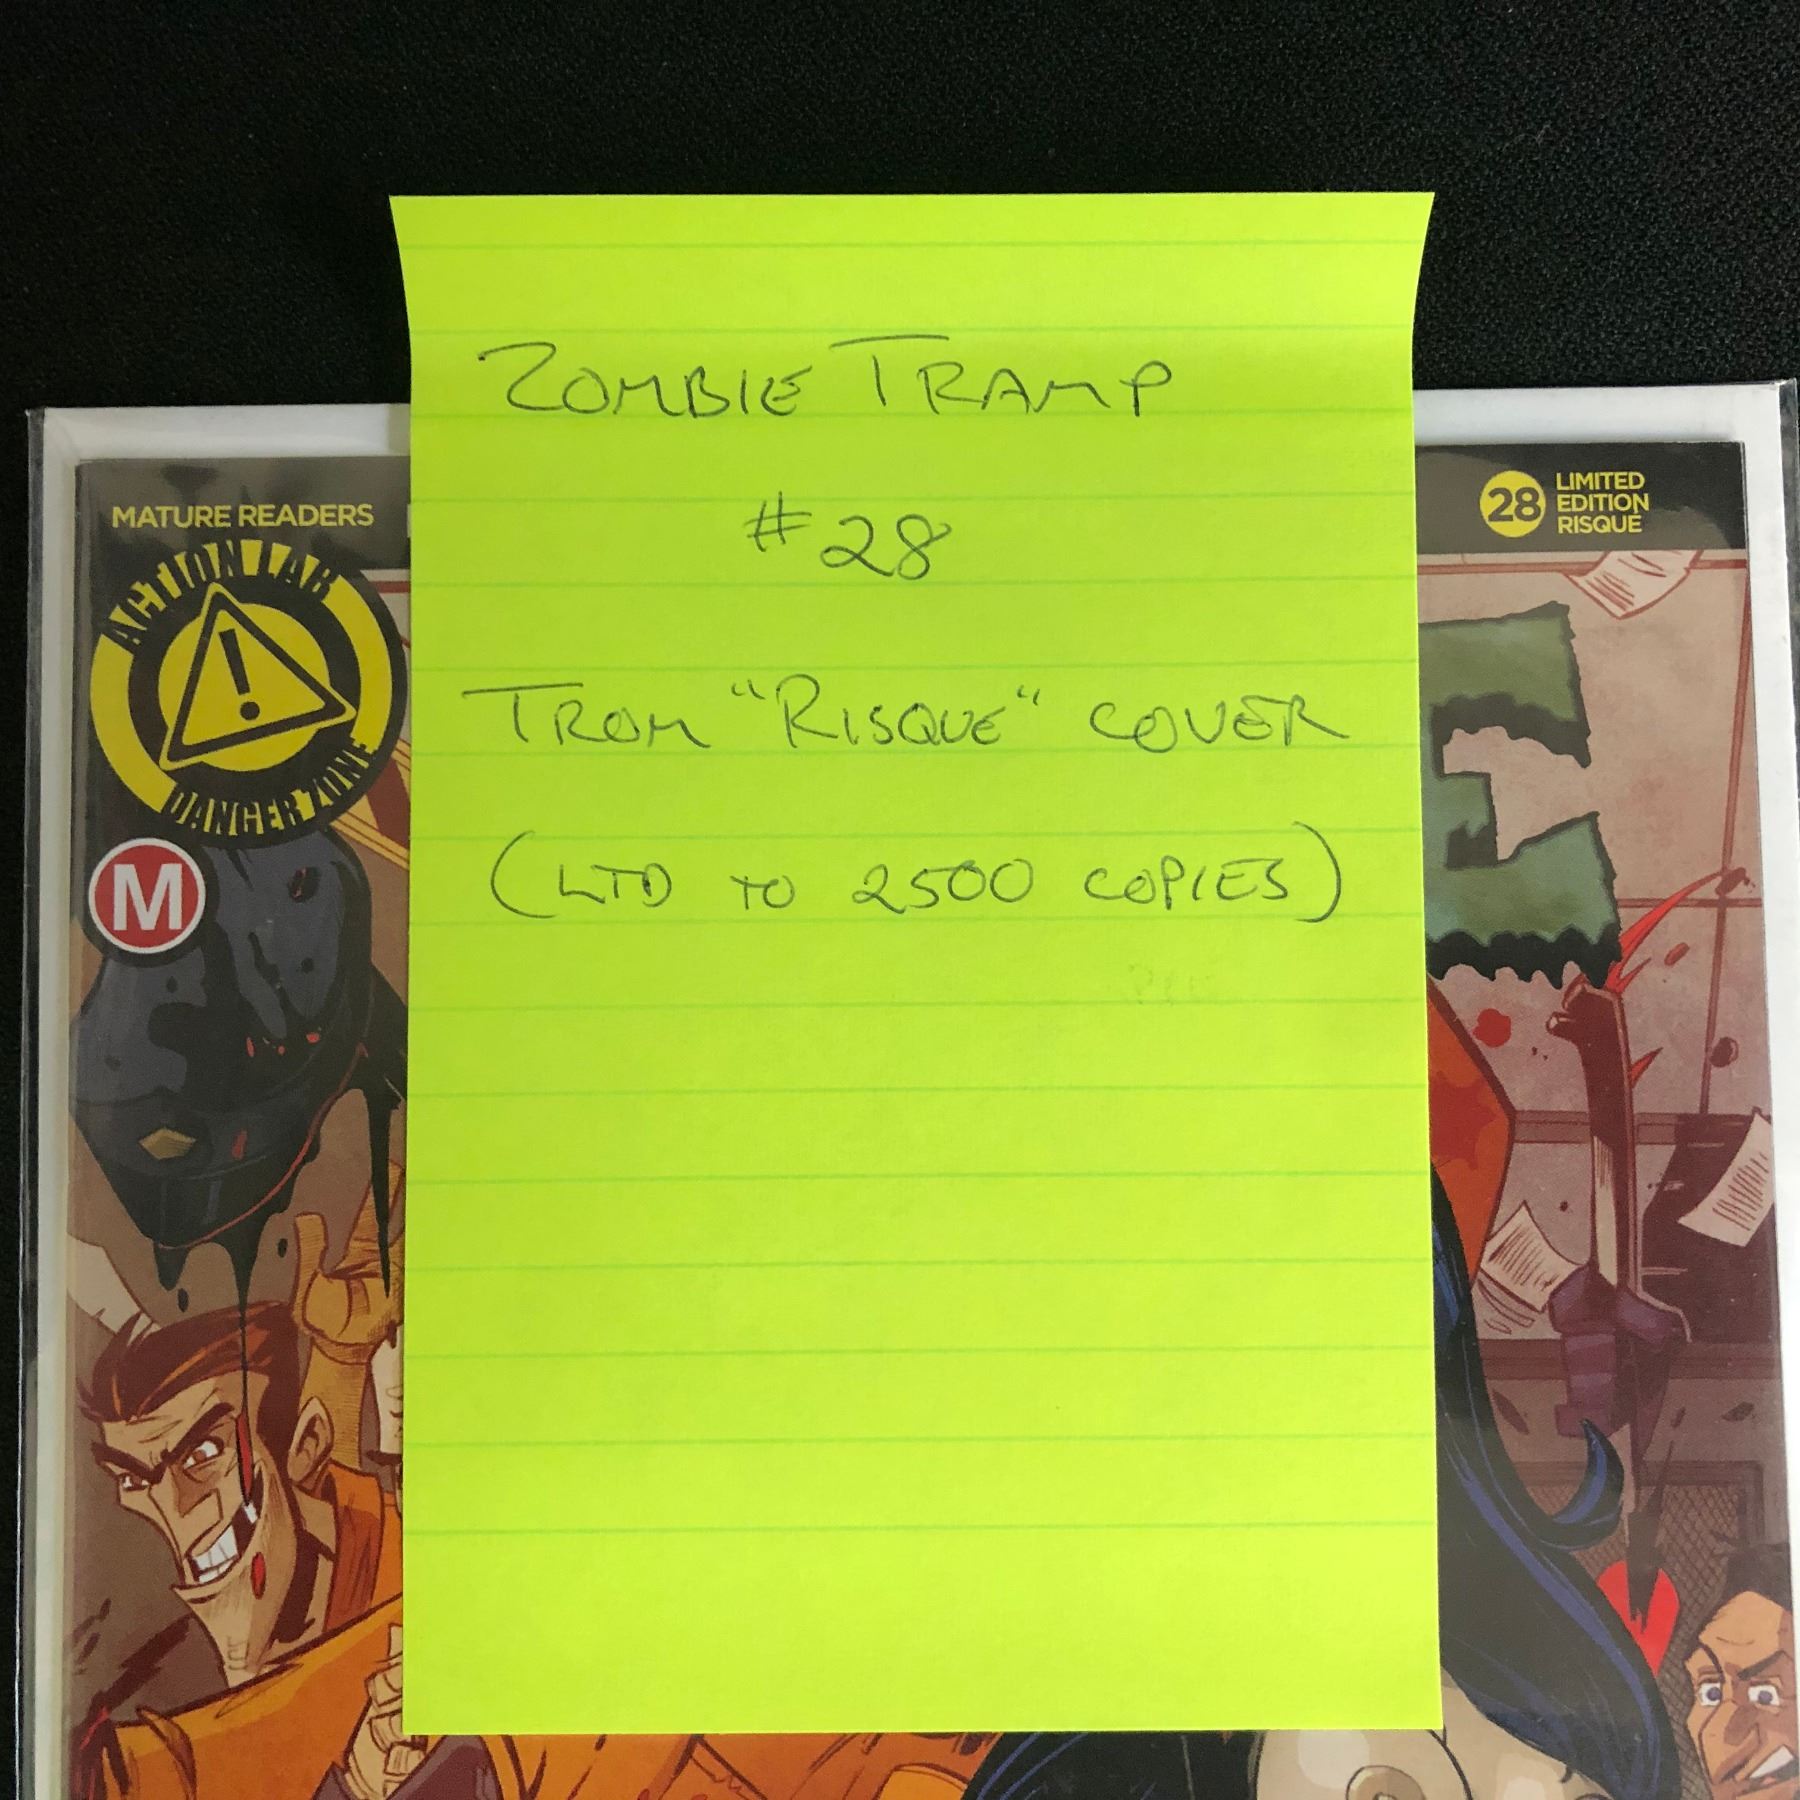 ZOMBIE TRAMP
#28
TROM "RISQUE" COVER
(LTD TO 2500 COPIES)
MATURE READERS
ACTION LAB
DANGER ZONE
M
28
LIMITED
EDITION
RISQUÉ
E